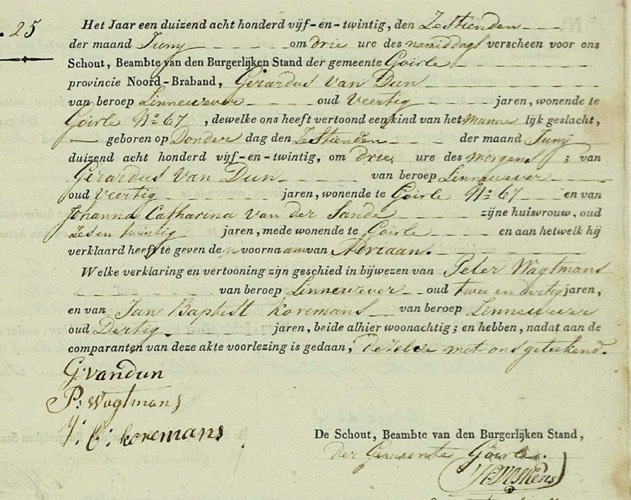 25
Het Jaar een duizend acht honderd vijf-en-twintig, den Zestienden
der maand Junij om drie ure des namiddags verscheen voor ons
Schout, Beambte van den Burgerlijken Stand der gemeente Goirle
provincie Noord-Braband, Gerardus Van Dun
van beroep Linnewever oud Veertig jaren, wonende te
Goirle No 67, dewelke ons heeft vertoond een kind van het Manne lijk geslacht,
geboren op Donder dag den Zestienden der maand Junij
duizend acht honderd vijf-en-twintig, om drie ure des morgens; van
Gerardus Van Dun van beroep Linnewever
oud Veertig jaren, wonende te Goirle No 67 en van
Johanna Catharina Van der Sande zijne huisvrouw, oud
Zes en twintig jaren, mede wonende te Goirle en aan hetwelk hij
verklaard heeft te geven den voornaam van Adriaan.
Welke verklaring en vertooning zijn geschied in bijwezen van Peter Wagtmans
van beroep Linnewever oud twee en dertig jaren,
en van Jan Baptist Koremans van beroep Linnewever
oud Dertig jaren, beide alhier woonachtig; en hebben, nadat aan de
comparanten van deze akte voorlezing is gedaan, dezelve met ons geteekend.
G van dun
P: Wagtmans
J: B: koremans
De Schout, Beambte van den Burgerlijken Stand,
der Gemeente Goirle.